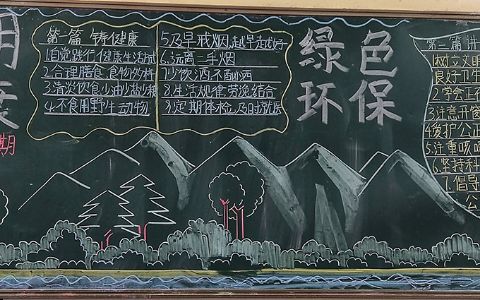 康
期
第一篇 铸健康
1.自觉践行健康生活方式
2.合理膳食 食物多样
3.清淡饮食 少油少盐少糖
4.不食用野生动物
5.及早戒烟 越早越好
6.远离二手烟
7.少饮酒不酗酒
8.生活规律 劳逸结合
9.定期体检 及时就医
绿色
环保
第二篇 讲
1.树立文明
2.良好卫生
3.注意开窗
4.爱护公
5.注重咳
6.坚持科
7.倡导
公